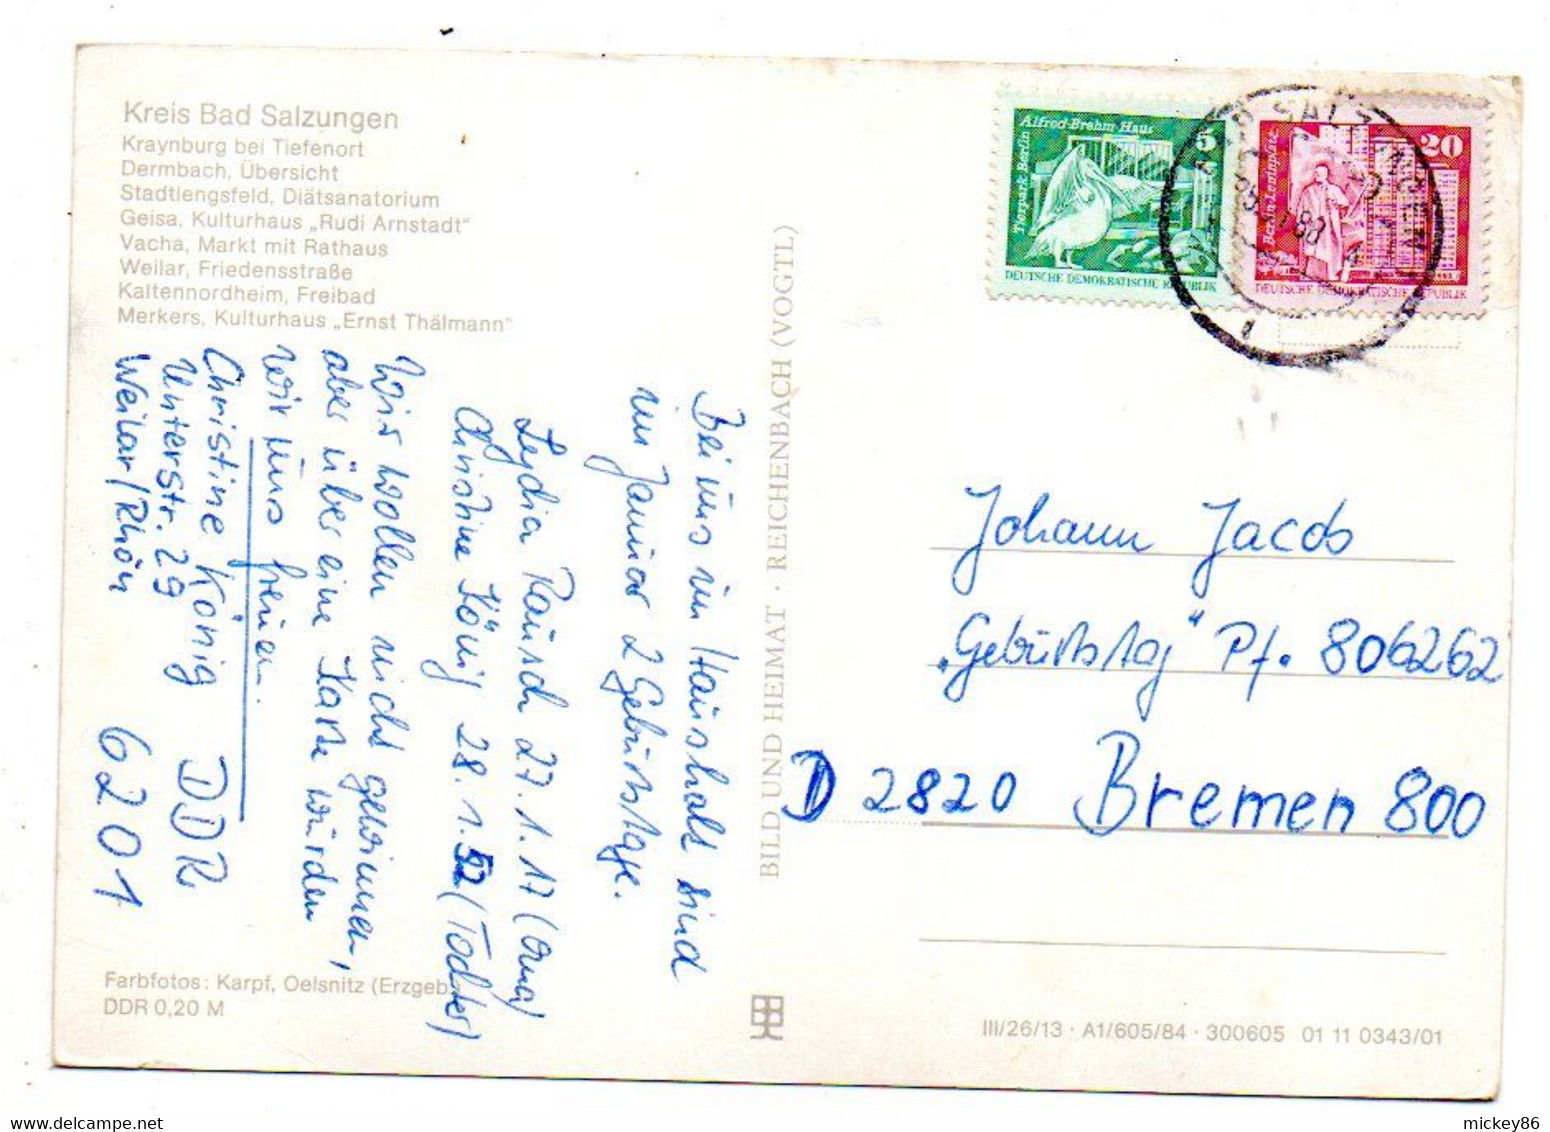 Kreis Bad Salzungen
Kraynburg bei Tiefenort
Dermbach, Übersicht
Stadtlengsfeld, Diätsanatorium
Geisa, Kulturhaus „Rudi Arnstadt"
Vacha, Markt mit Rathaus
Weilar, Friedensstraße
Kaltennordheim, Freibad
Merkers, Kulturhaus „Ernst Thälmann"
Bei uns im Haushalt sind
im Januar 2 Geburtstage.
Lydia Rausch 27.1.17 (Oma)
Christine König 28.1.52 (Tochter)
Wir wollen nicht gewinnen,
aber über eine Karte würden
wir uns freuen.
Christine König DDR
Unterstr. 29
Weilar/Rhön 6201
Farbfotos: Karpf, Oelsnitz (Erzgeb.
DDR 0,20 M
BILD UND HEIMAT · REICHENBACH (VOGTL)
Alfred-Brehm-Haus 5
Tierpark Berlin
DEUTSCHE DEMOKRATISCHE REPUBLIK
20
Berlin Leninplatz
DEUTSCHE DEMOKRATISCHE REPUBLIK
BAD SALZUNGEN
88
1
Johann Jacobs
„Geburtstag" Pf. 806262
D 2820 Bremen 800
III/26/13 · A1/605/84 · 300605 01 11 0343/01
mickey86